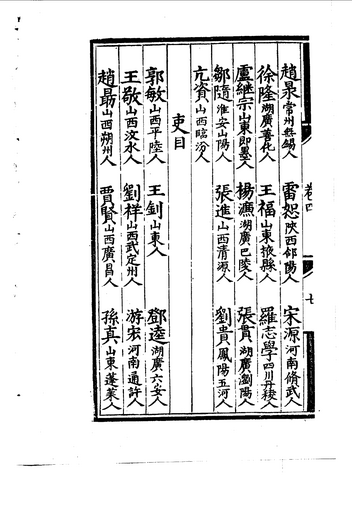 趙泉常州無錫人 雷恕陝西郃陽人 宋源河南脩武人
徐隆湖廣善化人 王福山東掖縣人 羅志學四川丹稜人
盧繼宗山東即墨人 楊瀌湖廣巴陵人 張貫湖廣瀏陽人
鄒隨淮安山陽人 張進山西清源人 劉貴鳳陽五河人
亢資山西臨汾人
吏目
郭敏山西平陸人 王釗山東人 鄧逵湖廣六安人
王敬山西汶水人 劉祥山西武定州人 游宏河南通許人
趙勗山西朔州人 賈賢山西廣昌人 孫真山東蓬萊人
卷四
七